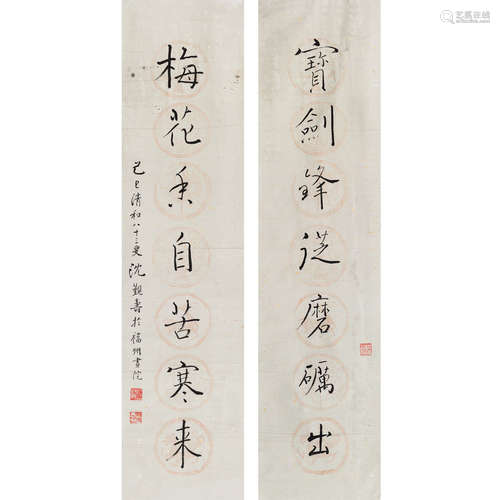 宝劍鋒從磨礪出
梅花香自苦寒来
己巳清和八十三叟沈覲壽於福州畫院